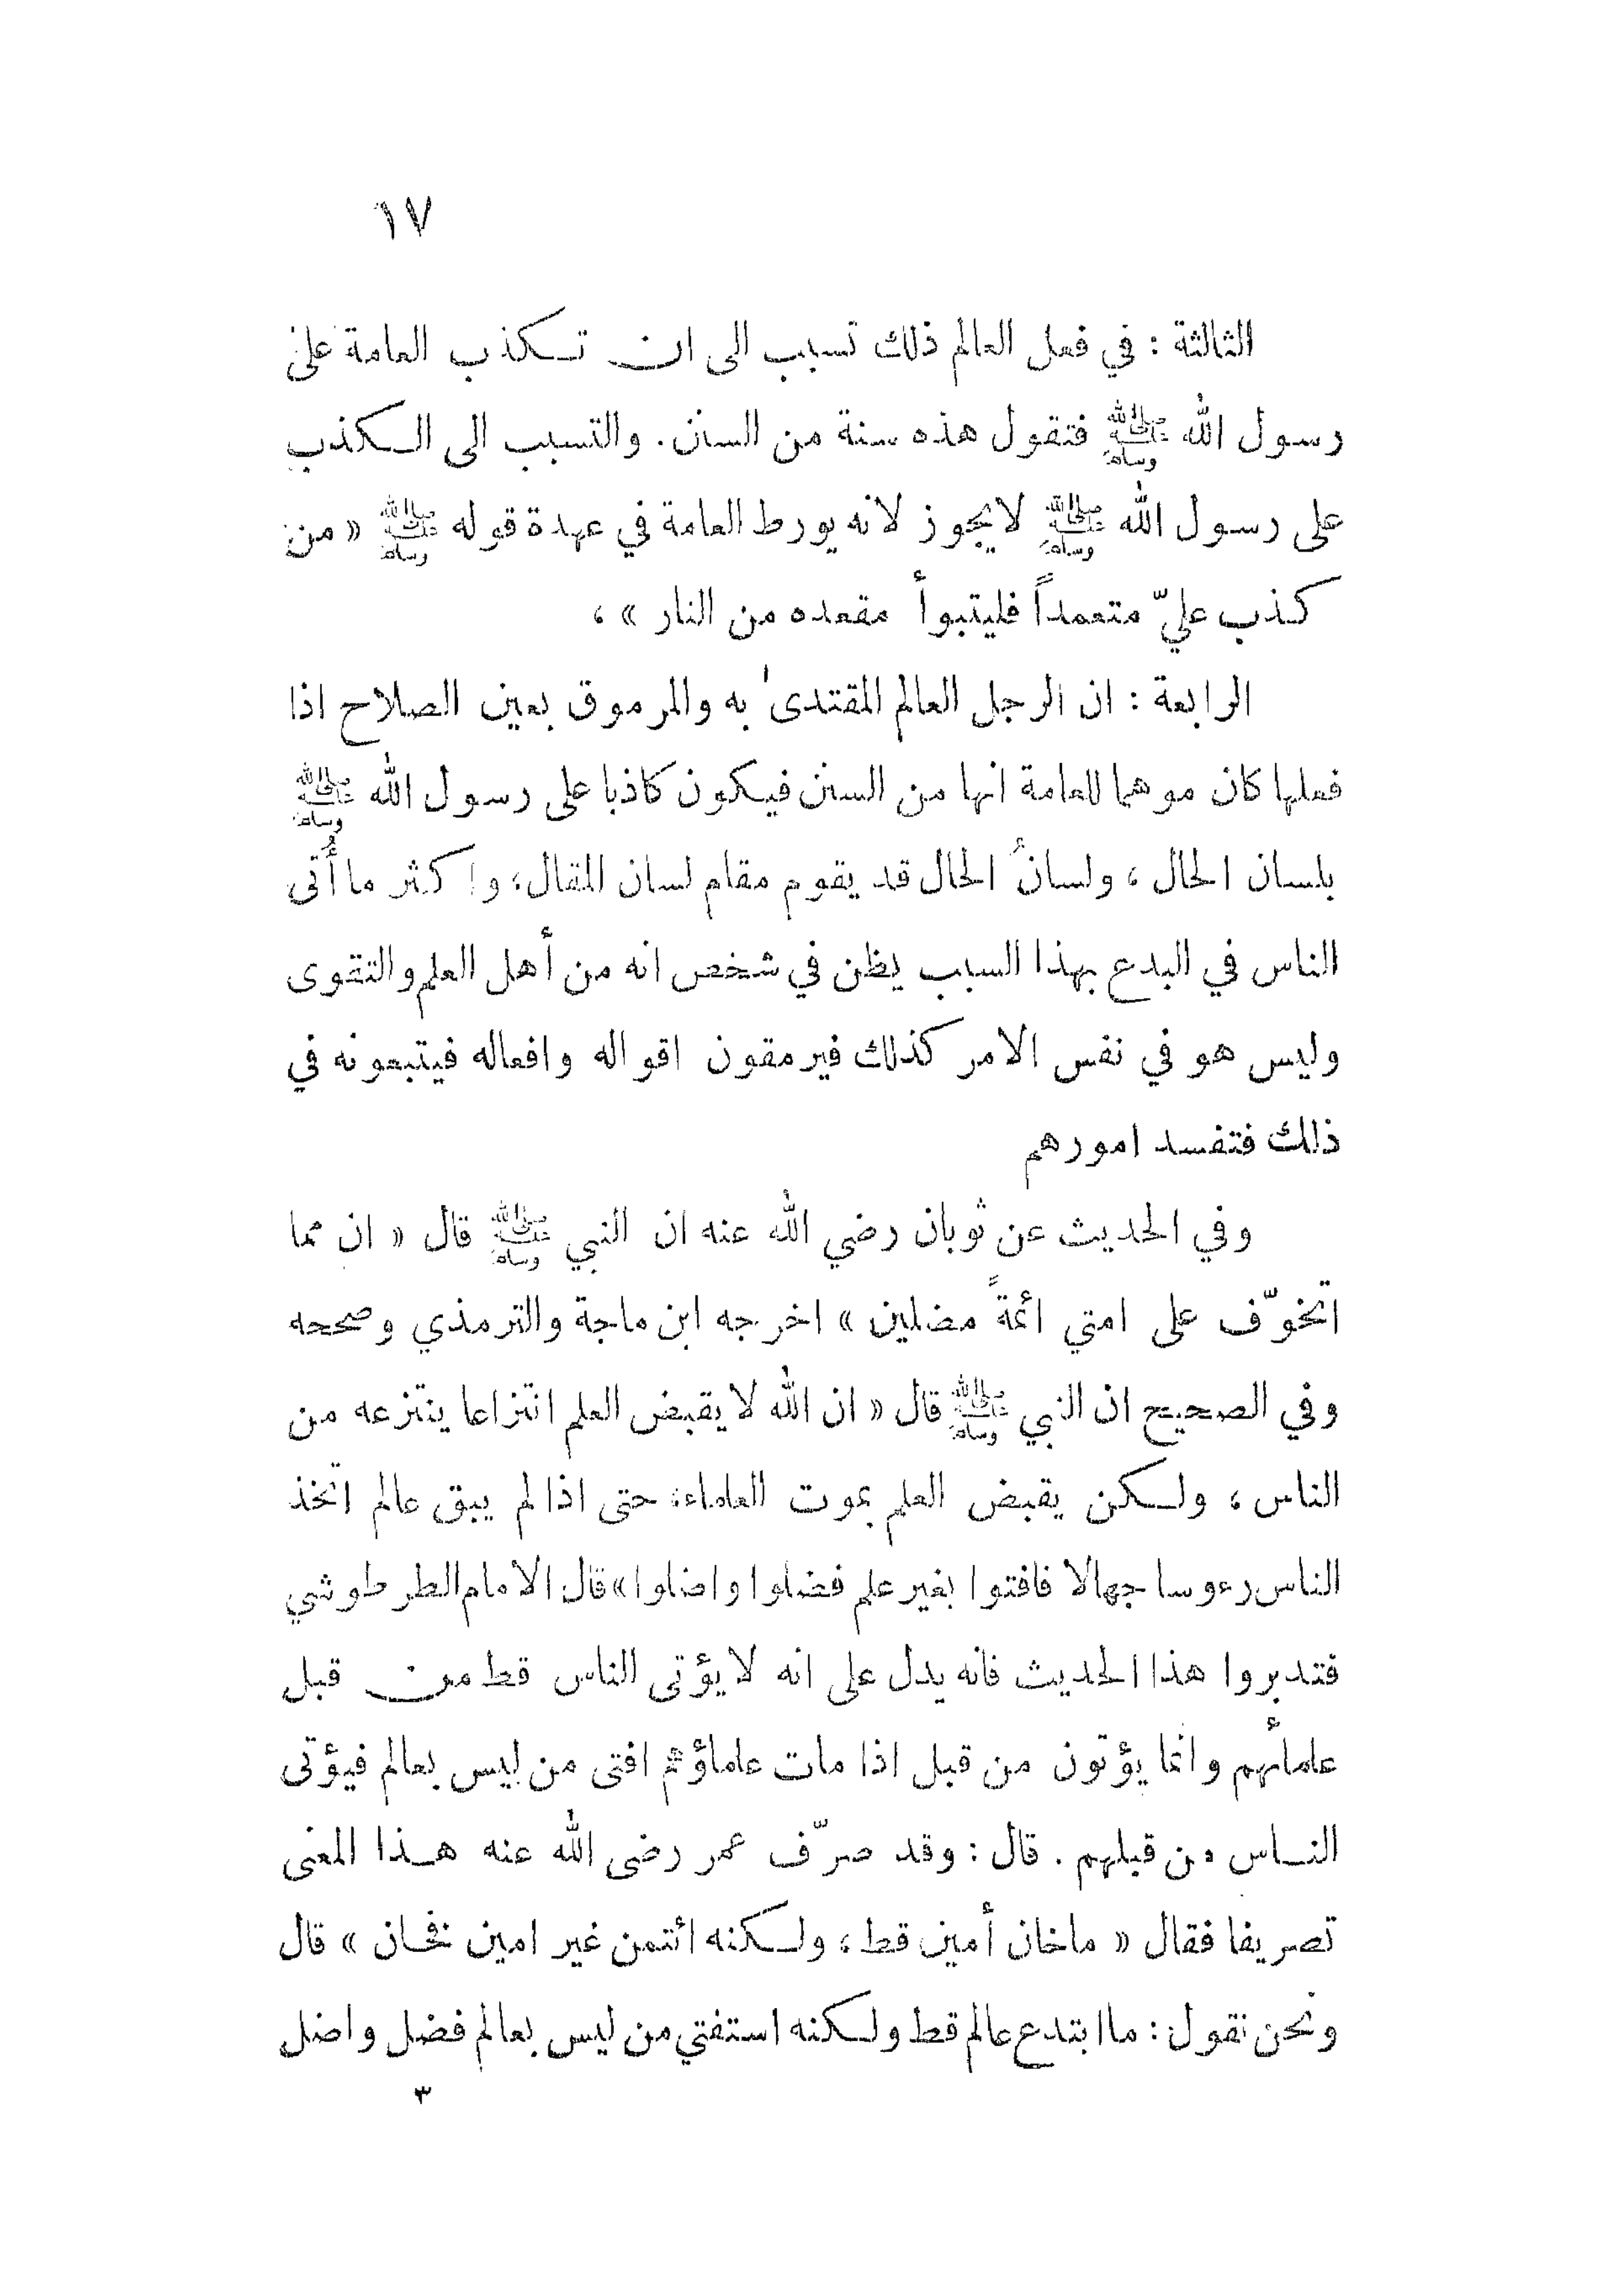 ١٧
الثالثة : في فعل العالم ذلك تسبب الى ان تكذب العامة على
رسول الله ﷺ فتقول هذه سنة من السنن . والتسبب الى الكذب
على رسول الله ﷺ لا يجوز لانه يورط العامة في عهدة قوله ﷺ « من
كذب عليّ متعمداً فليتبوأ مقعده من النار » ،
الرابعة : ان الرجل العالم المقتدى به والمرموق بعين الصلاح اذا
فعلها كان موهما للعامة انها من السنن فيكون كاذبا على رسول الله ﷺ
بلسان الحال ، ولسانُ الحال قد يقوم مقام لسان المقال ، واكثر ما أُتى
الناس في البدع بهذا السبب يظن في شخص انه من أهل العلم والتقوى
وليس هو في نفس الامر كذلك فيرمقون اقواله وافعاله فيتبعونه في
ذلك فتفسد امورهم
وفي الحديث عن ثوبان رضي الله عنه ان النبي ﷺ قال « ان مما
اتخوّف على امتي ائمةً مضلين » اخرجه ابن ماجة والترمذي وصححه
وفي الصحيح ان النبي ﷺ قال « ان الله لا يقبض العلم انتزاعا ينتزعه من
الناس ، ولكن يقبض العلم بموت العلماء ، حتى اذا لم يبق عالم اتخذ
الناس رءوسا جهالا فافتوا بغير علم فضلوا واضلوا » قال الامام الطرطوشي
فتدبروا هذا الحديث فانه يدل على انه لا يؤتى الناس قط من قبل
علمائهم وانما يؤتون من قبل اذا مات علماؤهم افتى من ليس بعالم فيؤتى
الناس من قبلهم . قال : وقد صرّف عمر رضى الله عنه هذا المعنى
تصريفا فقال « ما خان أمين قط ، ولكنه ائتمن غير امين فخان » قال
ونحن نقول : ما ابتدع عالم قط ولكنه استفتي من ليس بعالم فضل واضل
٣